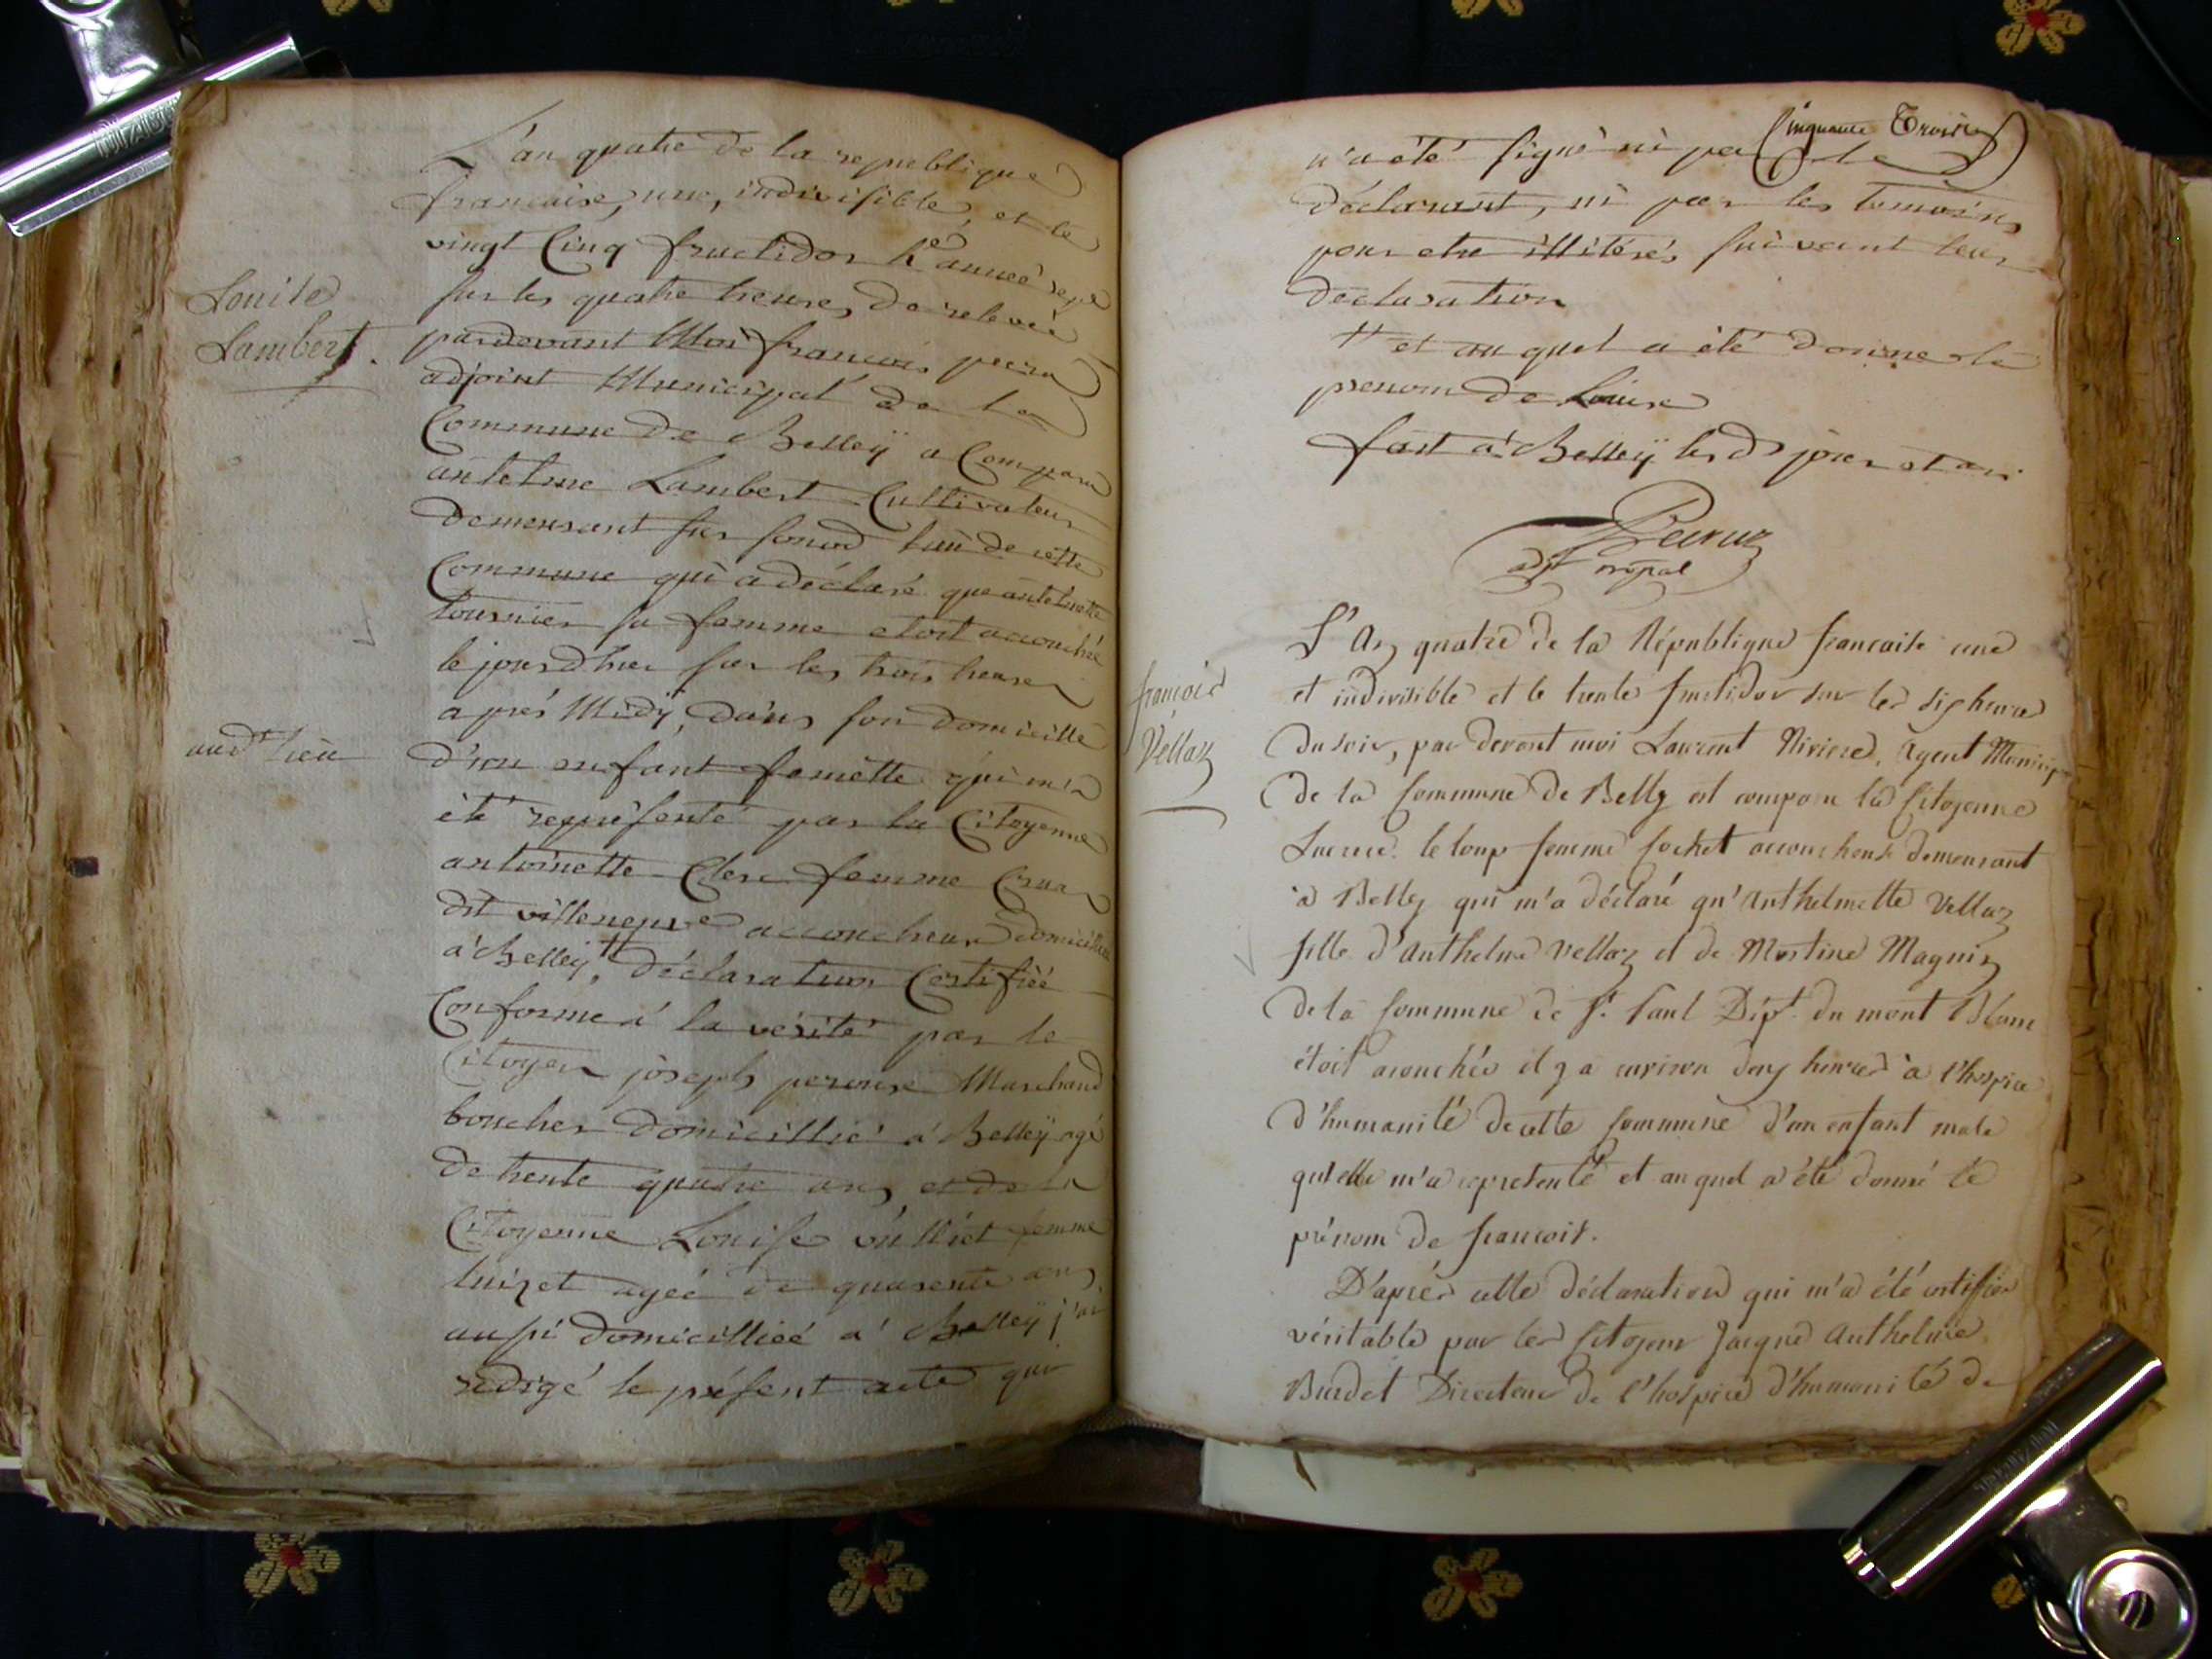 Louise
Lambert.
L'an quatre de la republique
francaise, une, indivisible, et le
vingt Cinq fructidor
sur les quatre heures de relevée
pardevant Moi francois
adjoint Municipal de la
Commune de Belleÿ a Comparu
antelme Lambert Cultivateur
demeurant sur de cette
Commune qui a déclaré que antelmette
tournier sa femme etoit accouchée
le jourdhier sur les trois heures
aprés Midÿ, dans son domicille
aud. lieu
d'un enfant femelle qui m'a
été représenté par la Citoyenne
antoinette Clerc femme
dit villeneuve accoucheuse
à Belleÿ, # déclaration Certifiée
Conforme à la vérité par le
Citoyen joseph perouse Marchand
boucher domicillié à Belleÿ agé
de trente quatre ans, et de la
Citoyenne Louise femme
tuizet ageé de quarente ans
aussi domicilliée à Belleÿ j'ai
redigé le présent acte qui
Cinquante Trois
n'a été signé ni par le
déclarant, ni par les temoins
pour etre illitérés suivant leur
déclaration
# et au quel a été donné le
prenom de Louise
fait à Belleÿ les d. jour et an.
adjt mpal
françois
Vellaz
L'An quatre de la République francaise une
et indivisible et le trente fructidor sur les six heures
du soir, par devant moi Laurent Riviere, Agent Municip
de la Commune de Belley est comparu la Citoyenne
Lucrece le loup femme Cochet accoucheuse demeurant
à Belley qui m'a déclaré qu'Anthelmette Vellaz
fille d'Anthelme Vellaz et de Martine Magnin
de la Commune de St. Paul Dépt. du mont Blanc
étoit acouchée il y a environ deux heures à l'hospice
d'humanité de cette Commune d'un enfant male
qu'elle m'a representé et auquel a été donné le
prénom de francois.
D'après cette déclaration qui m'a été certifiée
véritable par les Citoyens Jacque Anthelme
Burdet Directeur de l'hospice d'humanité de